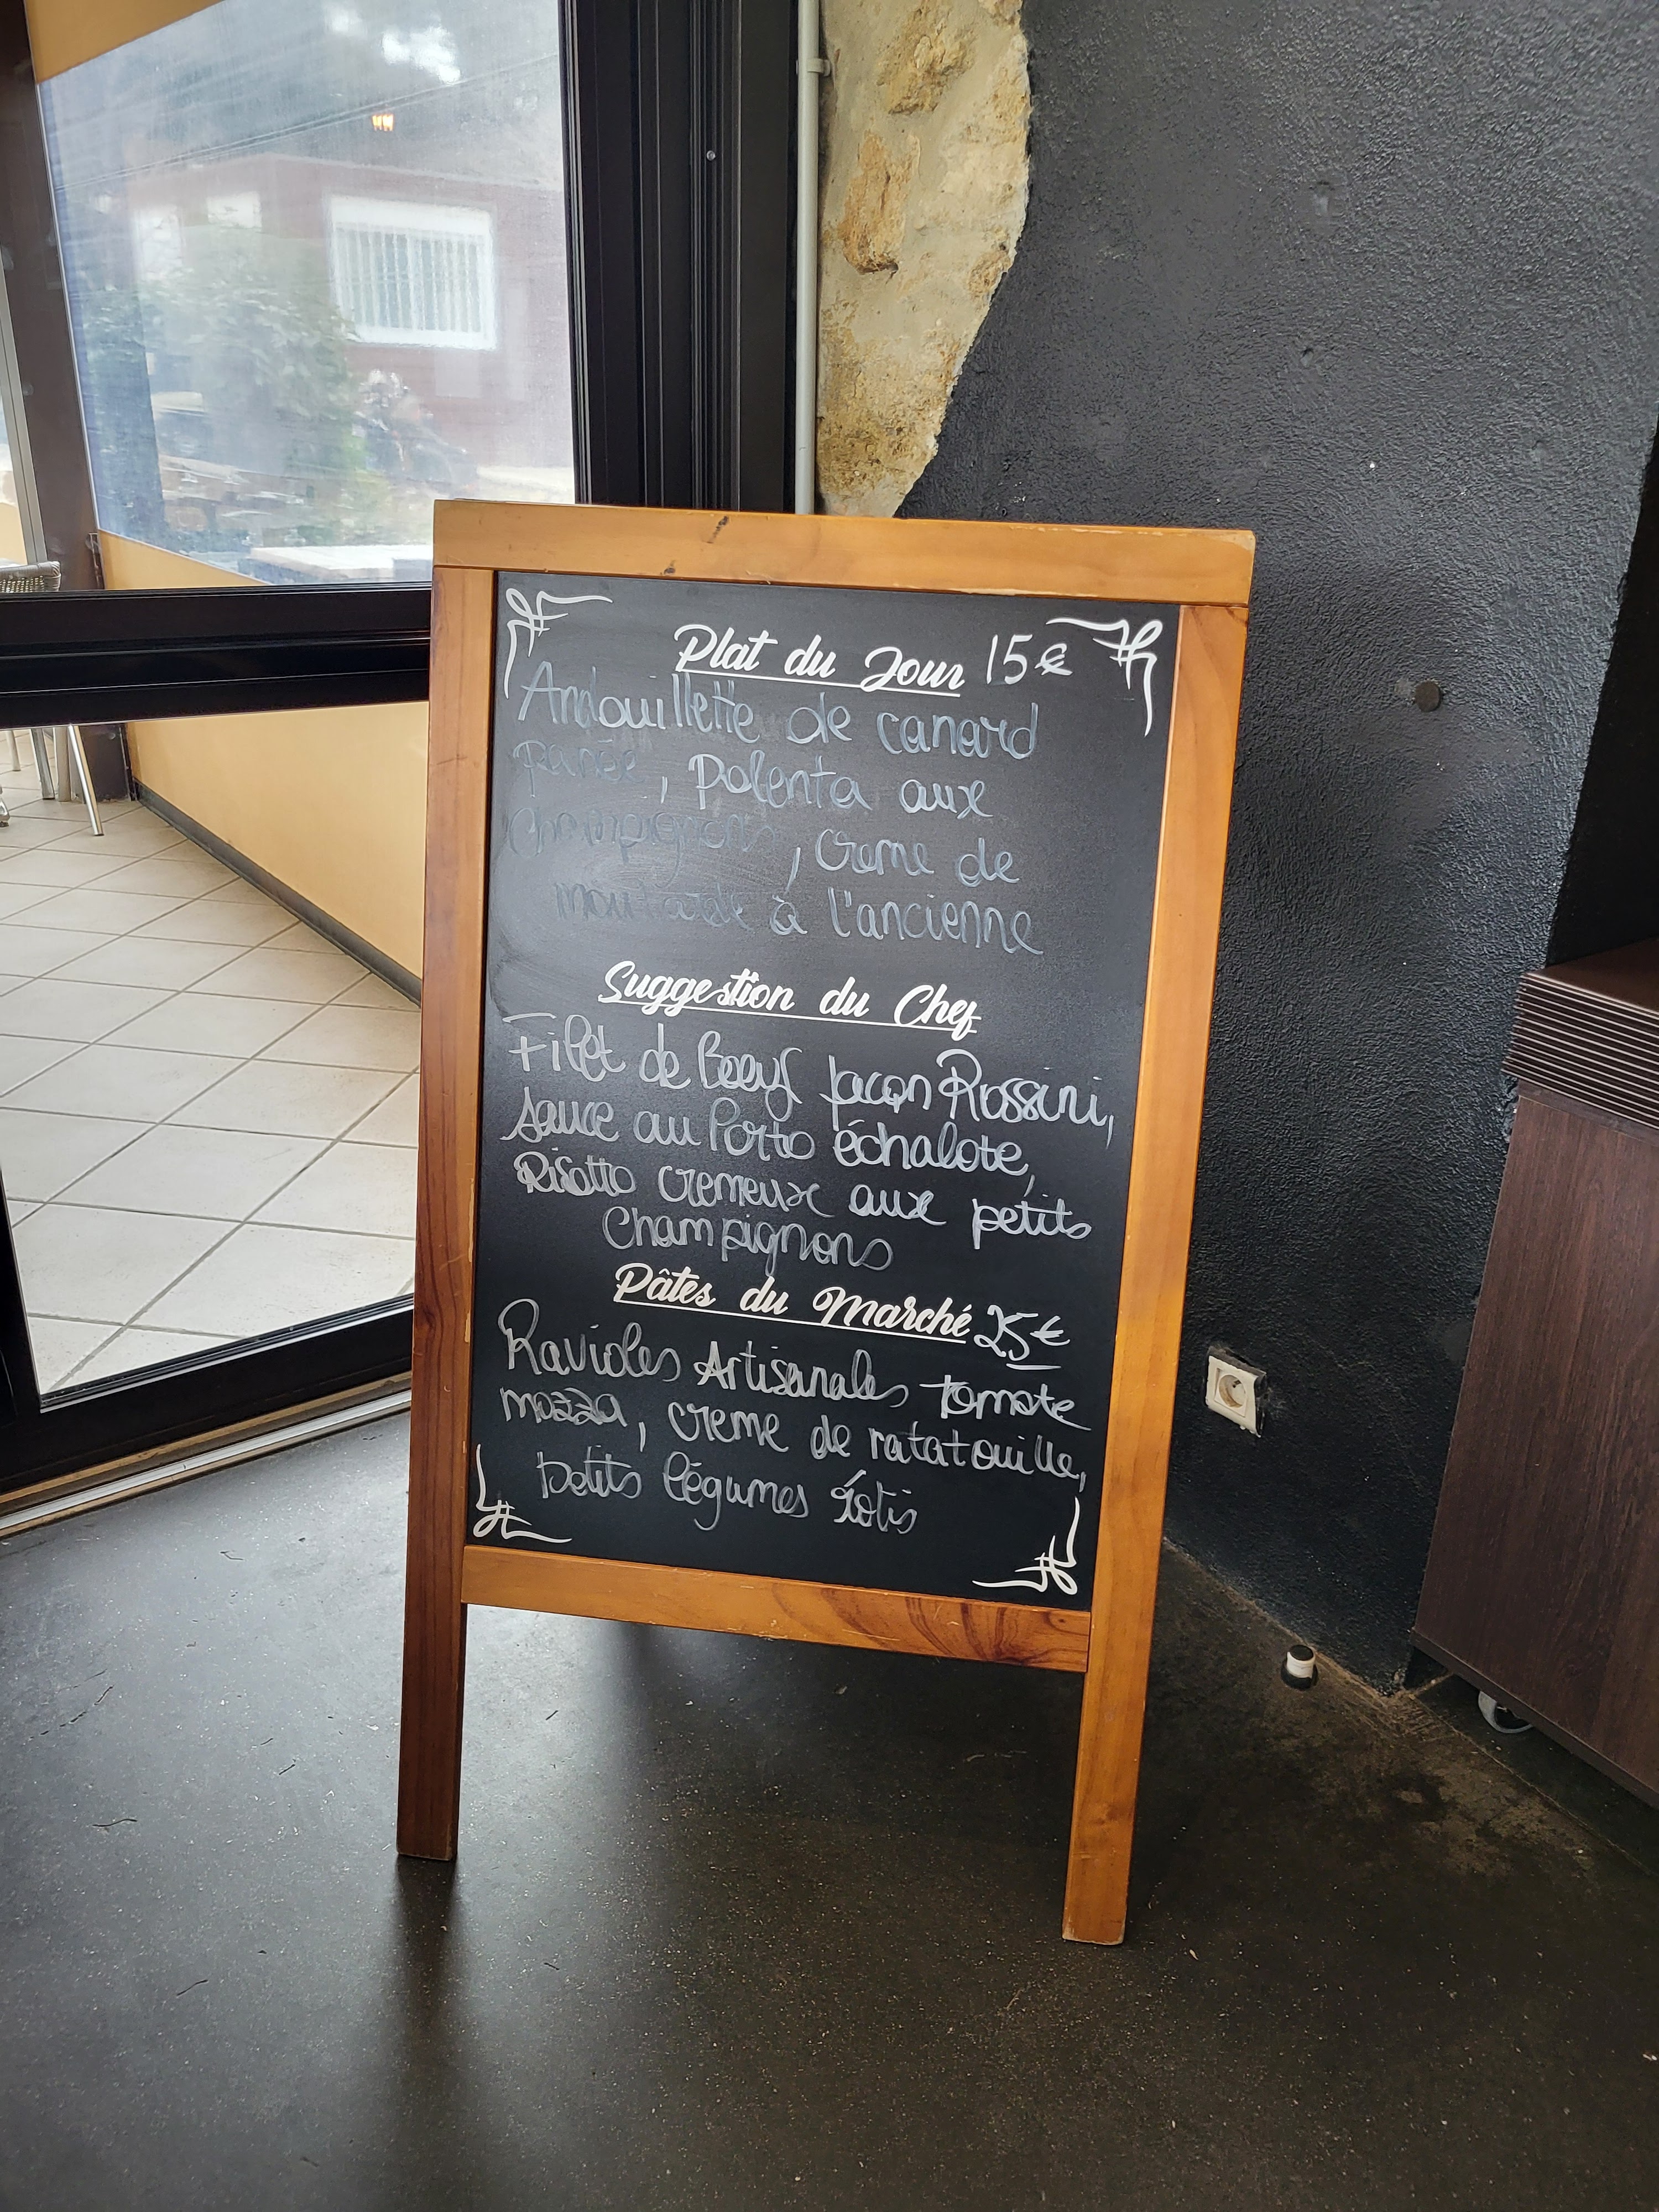 Plat du Jour 15€
Andouillette de canard
panée, Polenta aux
Champignons, Creme de
moutarde à l'ancienne
Suggestion du Chef
Filet de Boeuf façon Rossini,
Sauce au Porto échalote,
Risotto cremeux aux petits
Champignons
Pâtes du Marché 25€
Ravioles Artisanales tomate
mozza, creme de ratatouille,
petits légumes rotis